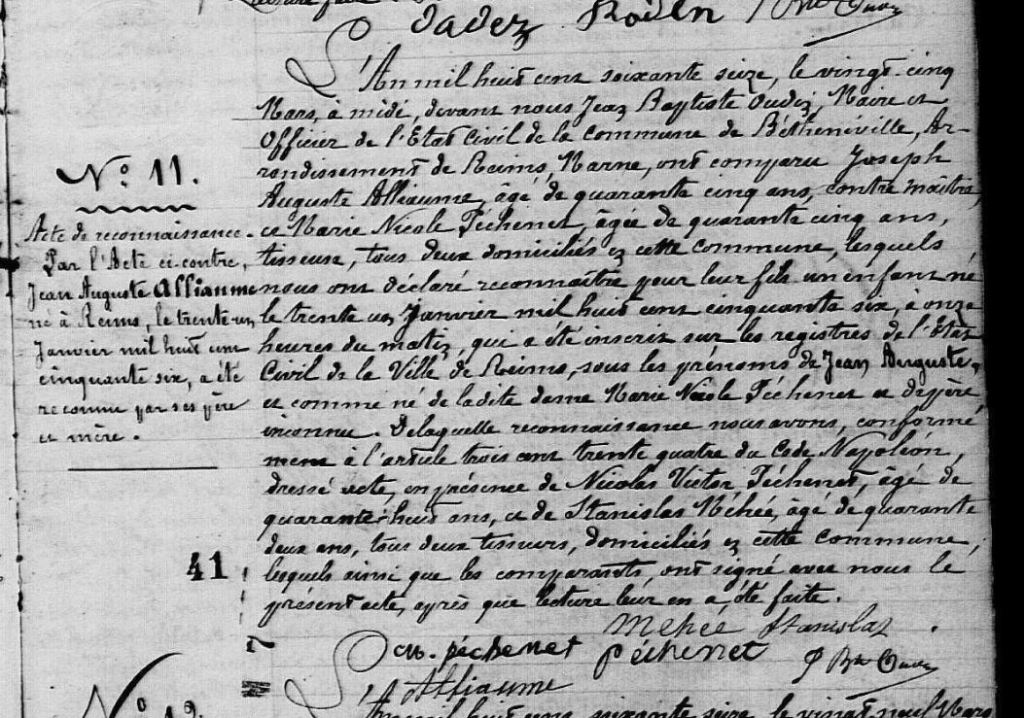 Oudez Roden
L'An mil huit cent soixante seize, le vingt-cinq
Mars, à midi, devant nous Jean Baptiste Oudin, Maire et
Officier de l'Etat Civil de la commune de Bétheniville, Ar-
rondissement de Reims, Marne, ont comparu Joseph
Auguste Alliaume, âgé de quarante cinq ans, contre maître,
et Marie Nicole Péchenet, âgée de quarante cinq ans,
tisseuse, tous deux domiciliés en cette commune, lesquels
nous ont déclaré reconnaître pour leur fils un enfant né
le trente un Janvier mil huit cent cinquante six, à onze
heures du matin, qui a été inscrit sur les registres de l'Etat
Civil de la Ville de Reims, sous les prénoms de Jean Auguste,
et comme né de ladite dame Marie Nicole Péchenet et de père
inconnu. De laquelle reconnaissance nous avons, conformé
ment à l'article trois cent trente quatre du Code Napoléon,
dressé acte, en présence de Nicolas Victor Péchenet, âgé de
quarante-huit ans, et de Stanislas Méhée, âgé de quarante
deux ans, tous deux tisseurs, domiciliés en cette commune,
lesquels ainsi que les comparants, ont signé avec nous le
présent acte, après que lecture leur en a été faite.
Mehée Stanislas
péchenet péchenet
Alliaume
N° 11.
Acte de reconnaissance.
Par l'Acte ci-contre,
Jean Auguste Alliaume
né à Reims, le trente un
Janvier mil huit cent
cinquante six, a été
reconnu par ses père
et mère.
41
L'An mil huit cent soixante seize, le vingt neuf Mars